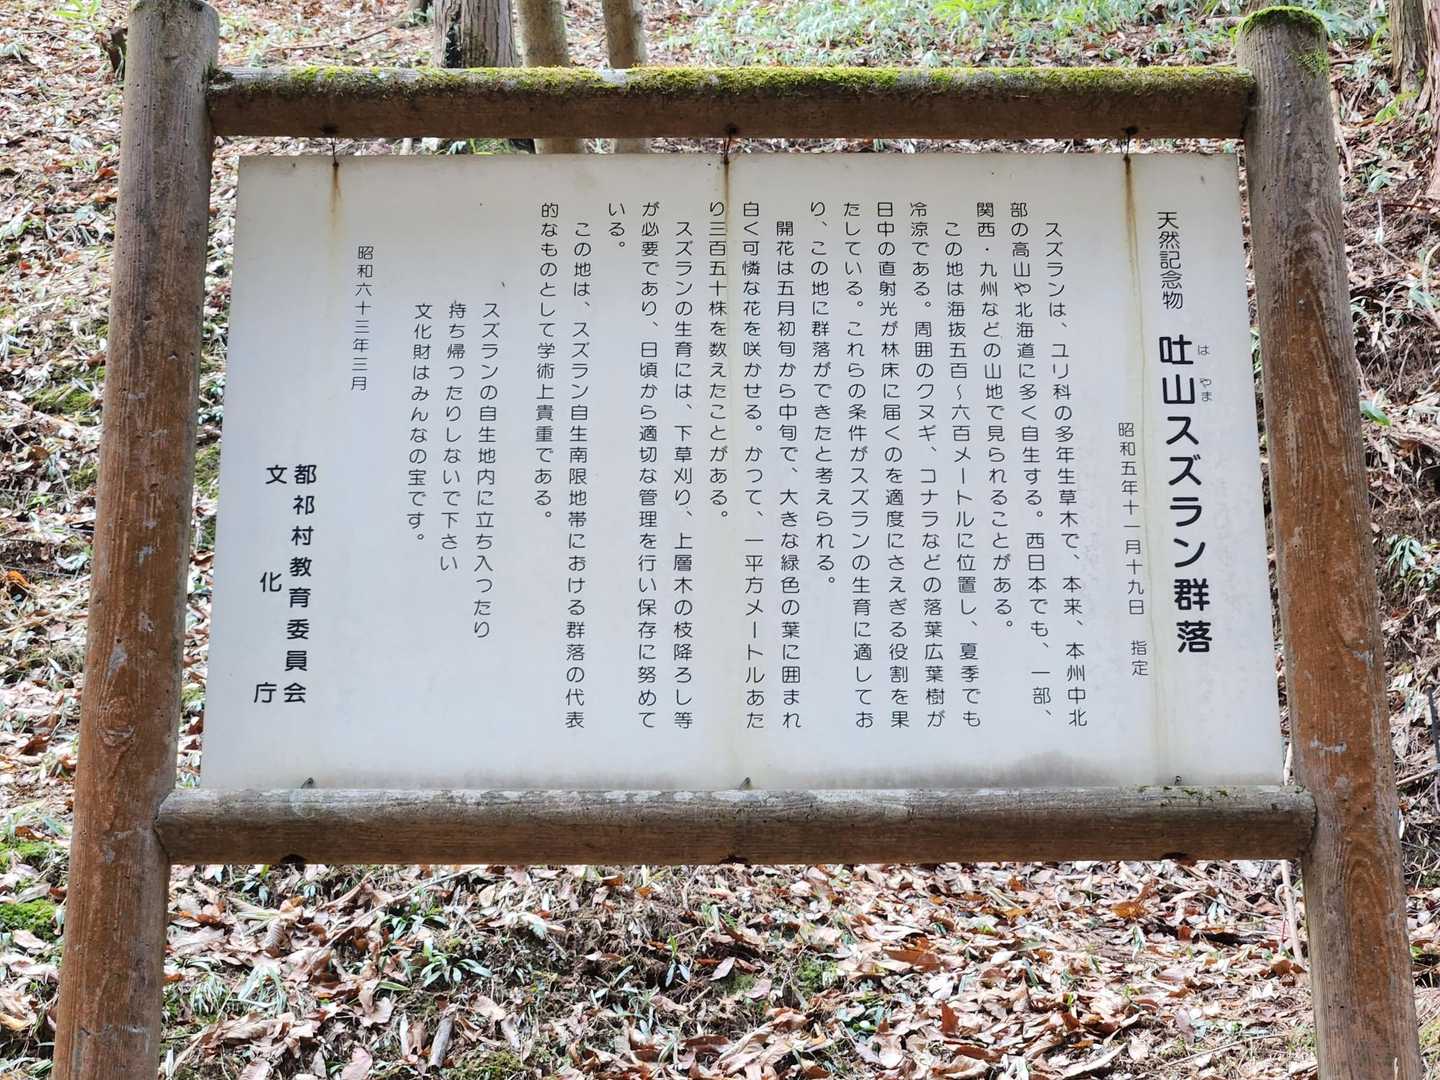 天然記念物 吐山スズラン群落
は やま
昭和五年十一月十九日 指定
スズランは、ユリ科の多年生草木で、本来、本州中北
部の高山や北海道に多く自生する。西日本でも、一部、
関西・九州などの山地で見られることがある。
この地は海抜五百～六百メートルに位置し、夏季でも
冷涼である。周囲のクヌギ、コナラなどの落葉広葉樹が
日中の直射光が林床に届くのを適度にさえぎる役割を果
たしている。これらの条件がスズランの生育に適してお
り、この地に群落ができたと考えられる。
開花は五月初旬から中旬で、大きな緑色の葉に囲まれ
白く可憐な花を咲かせる。かつて、一平方メートルあた
り三百五十株を数えたことがある。
スズランの生育には、下草刈り、上層木の枝降ろし等
が必要であり、日頃から適切な管理を行い保存に努めて
いる。
この地は、スズラン自生南限地帯における群落の代表
的なものとして学術上貴重である。
スズランの自生地内に立ち入ったり
持ち帰ったりしないで下さい
文化財はみんなの宝です。
昭和六十三年三月
都祁村教育委員会
文化庁